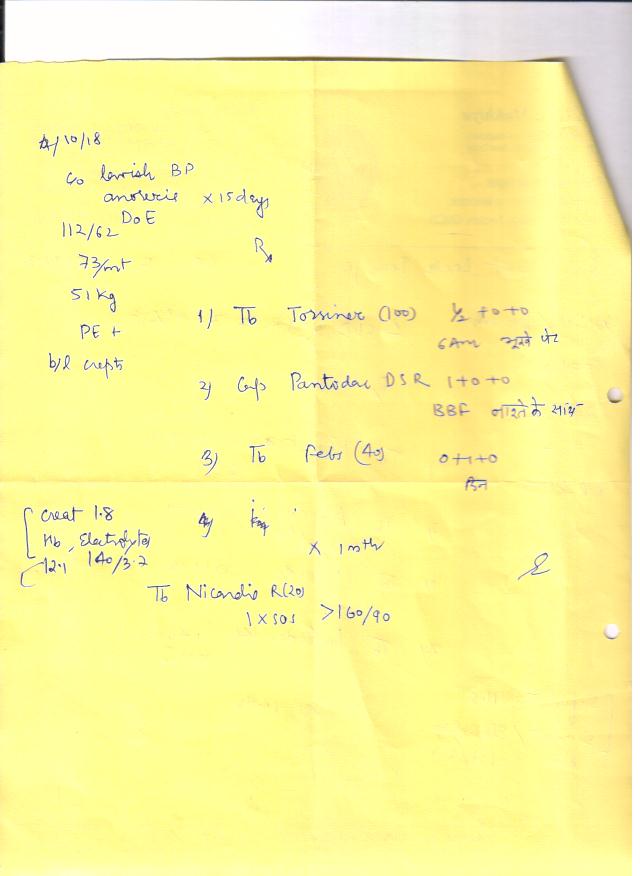 4/10/18
c/o lowish BP
anorexia x 15 days
DOE
112/62
Rx
73/mt
51 kg
1) Tb Torsiner (100) ½ +0+0
PE +
6 Am भूखे पेट
b/l crepts
2) Cap Pantodac DSR 1+0+0
BBF नाश्ते के साथ
3) Tb Febs (40) 0+1+0
दिन
Creat 1.8
4)
Hb, Electrolytes
x 1 mth
12.1 140/3.2
Tb Nicardia R(20)
1 x SOS >160/90